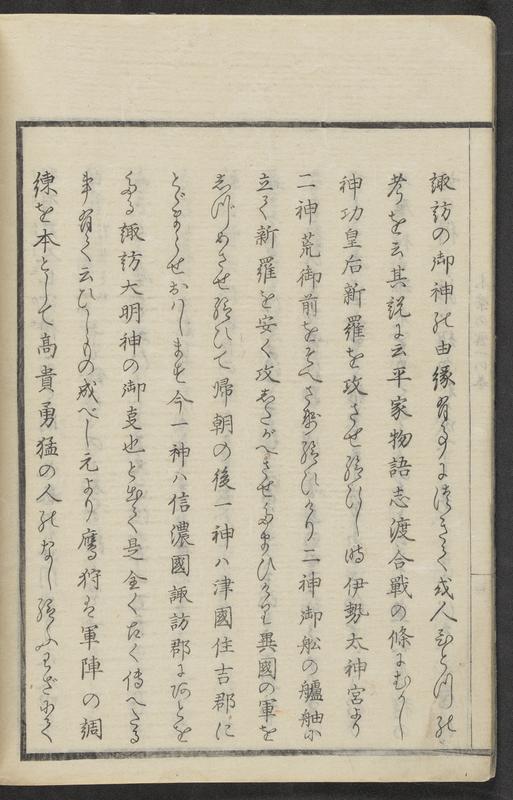 諏訪の御神の由縁有事につきて或人ひとつの
考を云其説に云平家物語志渡合戰の條にむかし
神功皇后新羅を攻させ給ひし時伊勢太神宮より
二神荒御前をそへさせ給ひけり二神御舩の艫舳に
立て新羅を安く攻したがへさせたまひけり異國の軍を
しづめさせ給ひて帰朝の後一神ハ津國住吉郡に
とゞまらせおはします今一神ハ信濃國諏訪郡にあとを
たる諏訪大明神の御事也と出て是全く古く傳へたる
事有て云ひしもの成べし元より鷹狩は軍陣の調
練を本として高貴勇猛の人のなし給ふわざにて